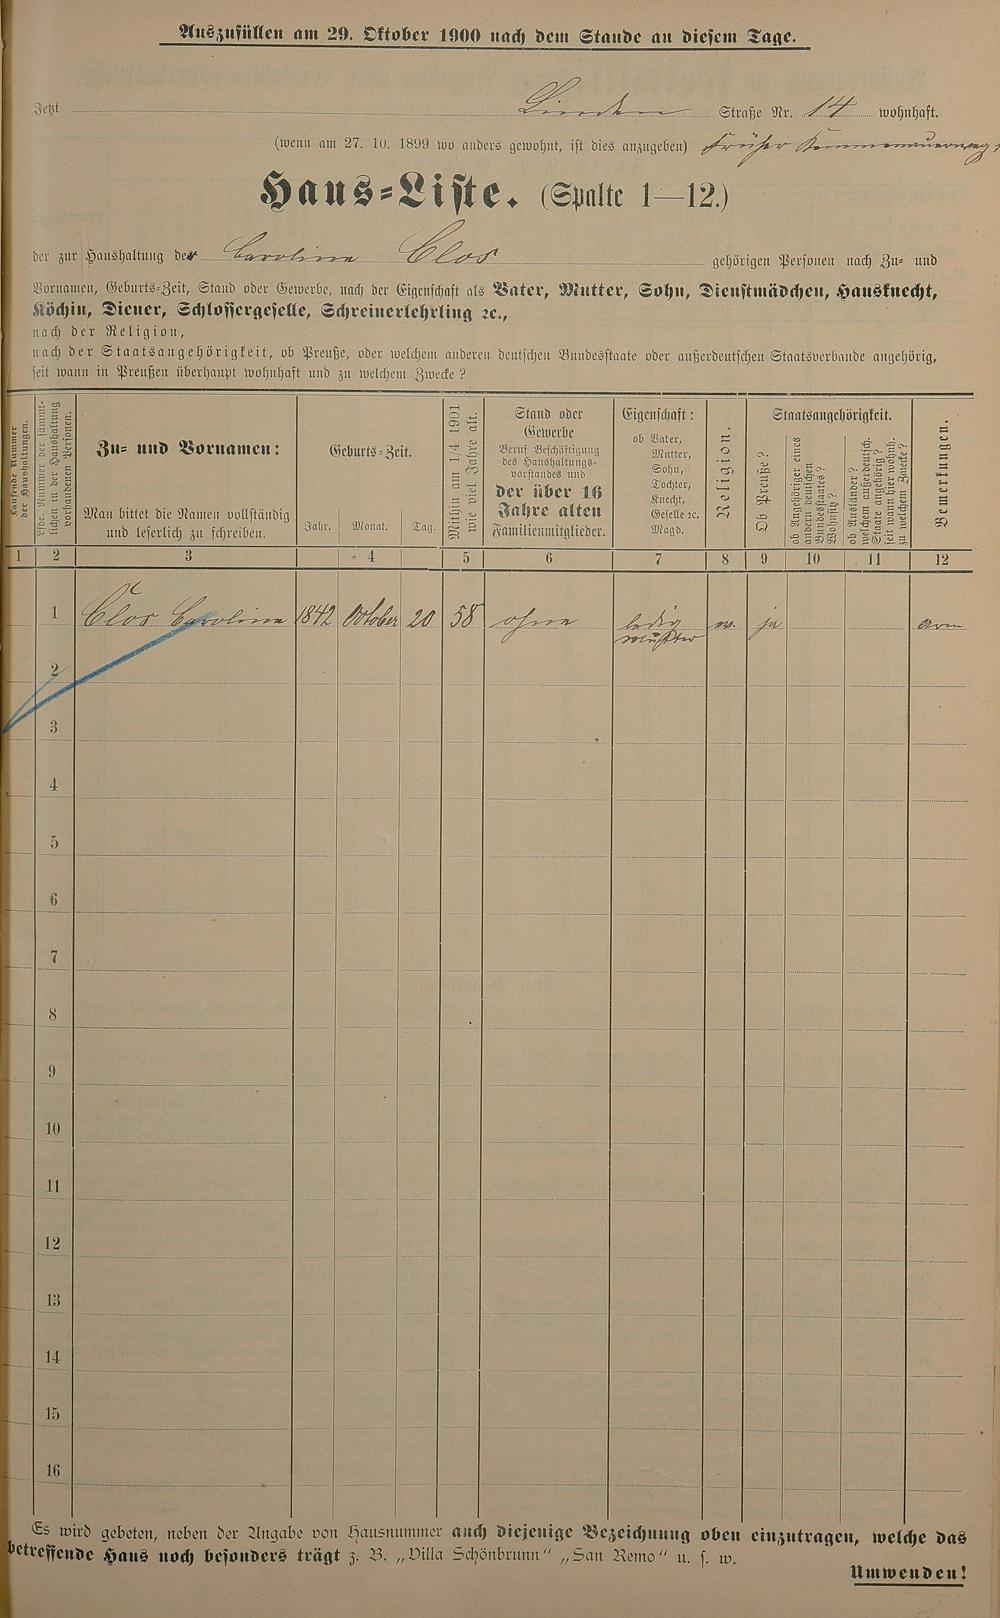 Auszufüllen am 29. Oktober 1900 nach dem Stande an diesem Tage.
Jetzt Linden Straße Nr. 14 wohnhaft.
(wenn am 27. 10. 1899 wo anders gewohnt, ist dies anzugeben) früher
Haus-Liste. (Spalte 1—12.)
der zur Haushaltung der Caroline Clos gehörigen Personen nach Zu- und
Vornamen, Geburts-Zeit, Stand oder Gewerbe, nach der Eigenschaft als Vater, Mutter, Sohn, Dienstmädchen, Hausknecht,
Köchin, Diener, Schlossergeselle, Schreinerlehrling ꝛc.,
nach der Religion,
nach der Staatsangehörigkeit, ob Preuße, oder welchem anderen deutschen Bundesstaate oder außerdeutschen Staatsverbande angehörig,
seit wann in Preußen überhaupt wohnhaft und zu welchem Zwecke?
Laufende Nummer
der Haushaltungen.
Lfde. Nummer der sämmt-
lichen in der Haushaltung
vorhandenen Personen.
Zu- und Vornamen:
Man bittet die Namen vollständig
und leserlich zu schreiben.
Geburts-Zeit.
Jahr. Monat. Tag.
Mithin am 1/4 1901
wie viel Jahre alt.
Stand oder
Gewerbe
Beruf Beschäftigung
des Haushaltungs-
vorstandes und
der über 16
Jahre alten
Familienmitglieder.
Eigenschaft:
ob Vater,
Mutter,
Sohn,
Tochter,
Knecht,
Geselle ꝛc.
Magd.
Religion.
Staatsangehörigkeit.
Ob Preuße?
ob Angehöriger eines
andern deutschen
Bundesstaates?
Wohnsitz?
ob Ausländer?
welchem außerdeutsch.
Staate angehörig?
seit wann hier wohnh.
zu welchem Zwecke?
Bemerkungen.
1 2 3 4 5 6 7 8 9 10 11 12
1 Clos Caroline 1842 October 20 58 ohne ledig ev. ja arm
Mutter
2
3
4
5
6
7
8
9
10
11
12
13
14
15
16
Es wird gebeten, neben der Angabe von Hausnummer auch diejenige Bezeichnung oben einzutragen, welche das
betreffende Haus noch besonders trägt z. B. „Villa Schönbrunn“ „San Remo“ u. s. w.
Umwenden!